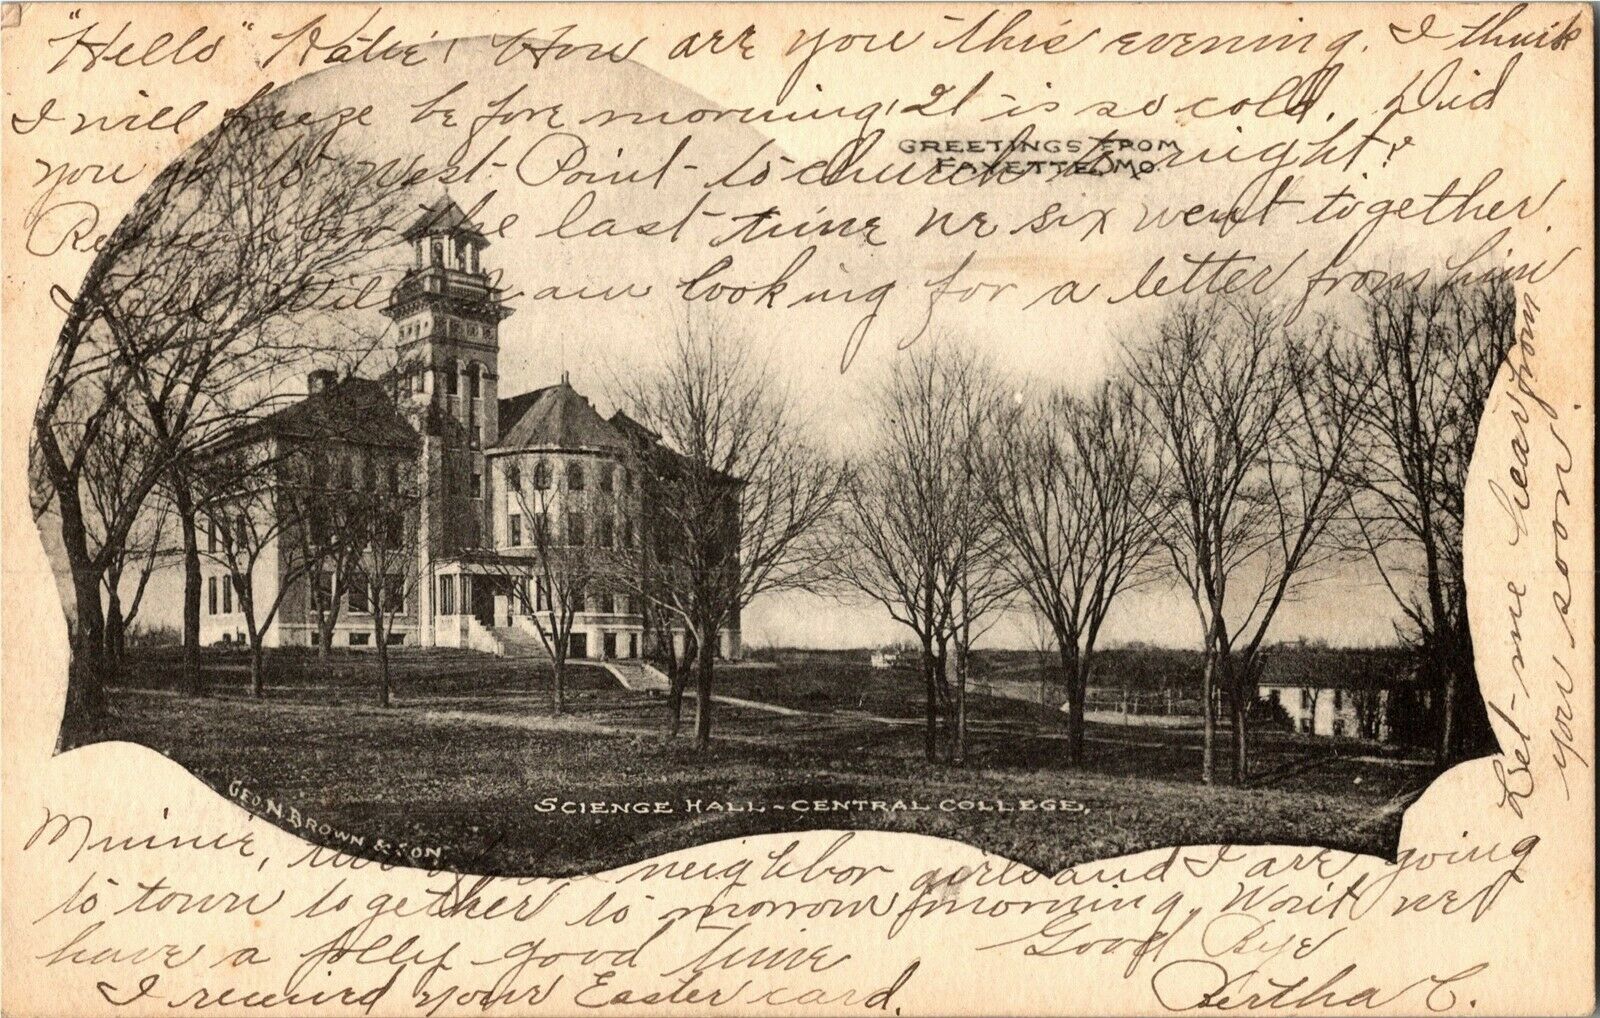 "Hello" Katie! How are you this evening. I think
I will freeze before morning! It is so cold. Did
you go to West Point to church to night?
Remember the last time we six went together.
I am looking for a letter from him
GREETINGS FROM
FAYETTE, MO.
Let me hear from
you soon.
GEO. N. BROWN & SON
SCIENCE HALL - CENTRAL COLLEGE,
Minnie, two neighbor girls and I are going
to town together to morrow morning. Won't we
have a jolly good time
Good Bye
I received your Easter card.
Bertha C.